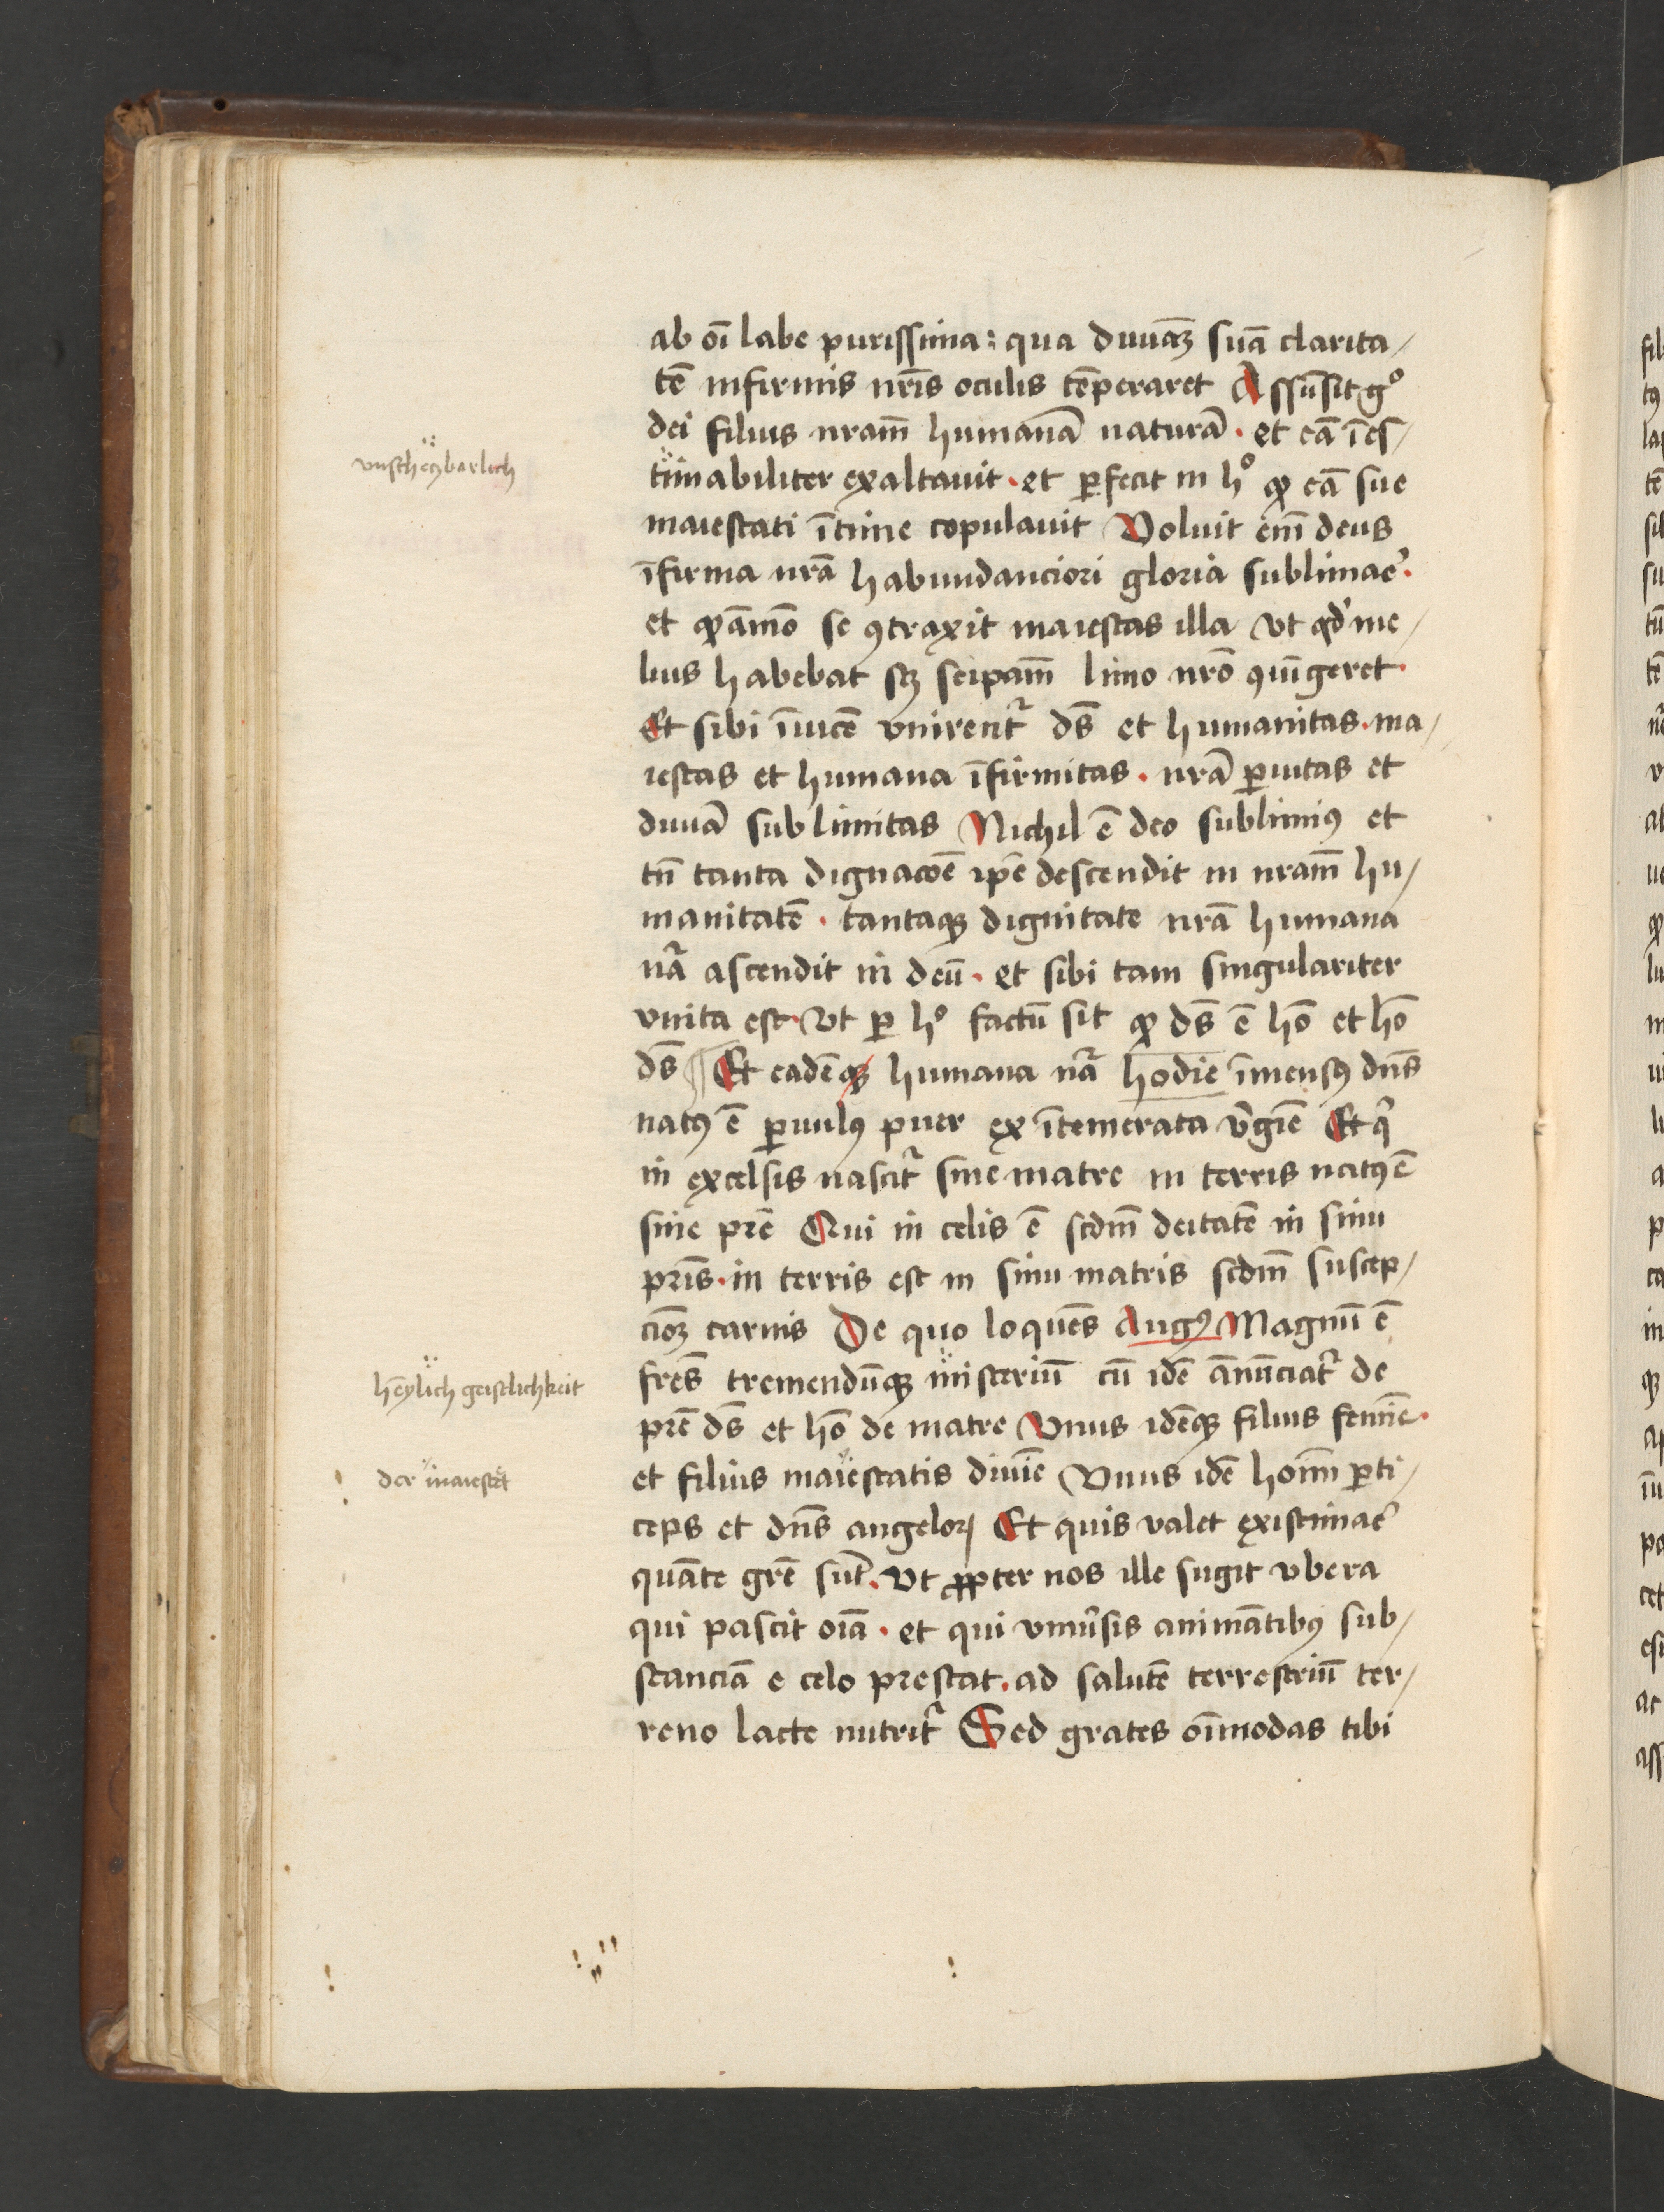 ab oī labe purissima: qua diuinaꝫ suā clarita/
tē infirmis nr̄is oculis tēperaret Assūsit gͦ
dei filius nram̄ humanā naturā · et eā īes/
vnscheczberlich
timabiliter exaltauit · et ꝑfecit in hͦ ꝙ eā sue
maiestati ītime copulauit Voluit em̄ deus
īfirma nrā habundanciori gloria sublimar̄e ·
et ꝙāmō se ꝯtraxit maiestas illa vt qd' me/
lius habebat sꝫ seipam̄ limo nrō ꝯiūgeret ·
Et sibi īuicē vnirentr̄ ds̄ et humanitas · ma/
iestas et humana īfirmitas · nrā ꝑuitas et
diuīa sublimitas Nichil ē deo sublimiꝰ et
tn̄ tanta dignacōe ip̄e descendit in nram̄ hu/
manitatē · tantaqꝫ dignitate nrā humana
nr̄a ascendit in deū · et sibi tam singulariter
vnita est · vt ꝑ hͦ factū sit ꝙ ds̄ ē hō et hō
ds̄ ¶ Et eadēqꝫ humana nr̄a hodie īmensꝰ dn̄s
natꝰ ē ꝑuulꝰ puer ex ītemerata v̄gīe Et qͥ
in excelsis nascit̄r sine matre in terris natꝰ ē
sine pr̄e Qui in celis ē scdm̄ deitatē in sinu
pr̄is · in terris est in sinu matris scdm̄ suscep/
cioꝫ carnis De quo loquēs Augꝰ Magnū ē
heylich geistlichkeit
fr̄es tremendūqꝫ misteriū cū idē ānūciat̄r de
pr̄e ds̄ et hō de matre Vnus idēqꝫ filius femīe ·
der maiestet
et filius maiestatis diuīe Vnus idē hoīm ꝑti/
ceps et dn̄s angeloꝝ Et quis valet existimar̄e
quāte gr̄e sūt · vt ꝓpter nos ille sugit vbera
qui pascit oīa · et qui vniūsis animātibꝰ sub/
stanciā e celo prestat · ad salutē terrestriū ter/
reno lacte nutrit̄r Sed grates oīmodas tibi